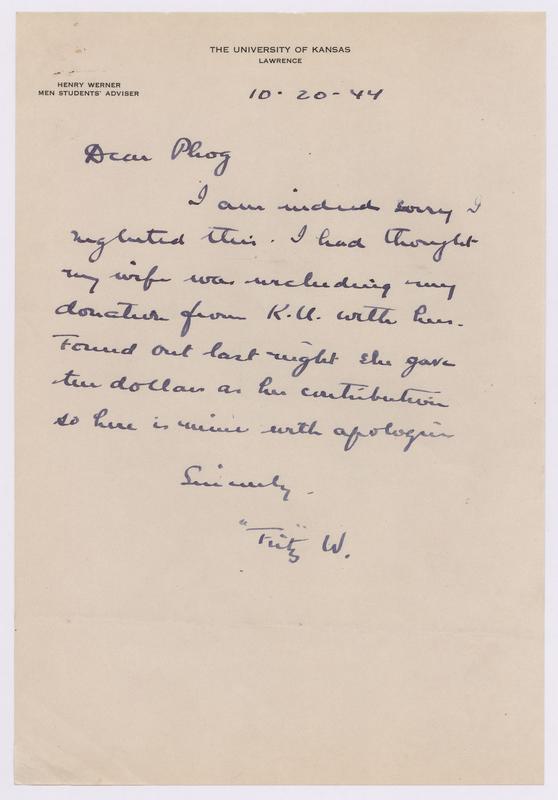 THE UNIVERSITY OF KANSAS
LAWRENCE
HENRY WERNER
MEN STUDENTS' ADVISER
10-20-44
Dear Phog
I am indeed sorry I
neglected this. I had thought
my wife was including my
donation from K.U. with hers.
Found out last night she gave
ten dollars as her contribution
so here is mine with apologies
Sincerely,
"Fritz" W.